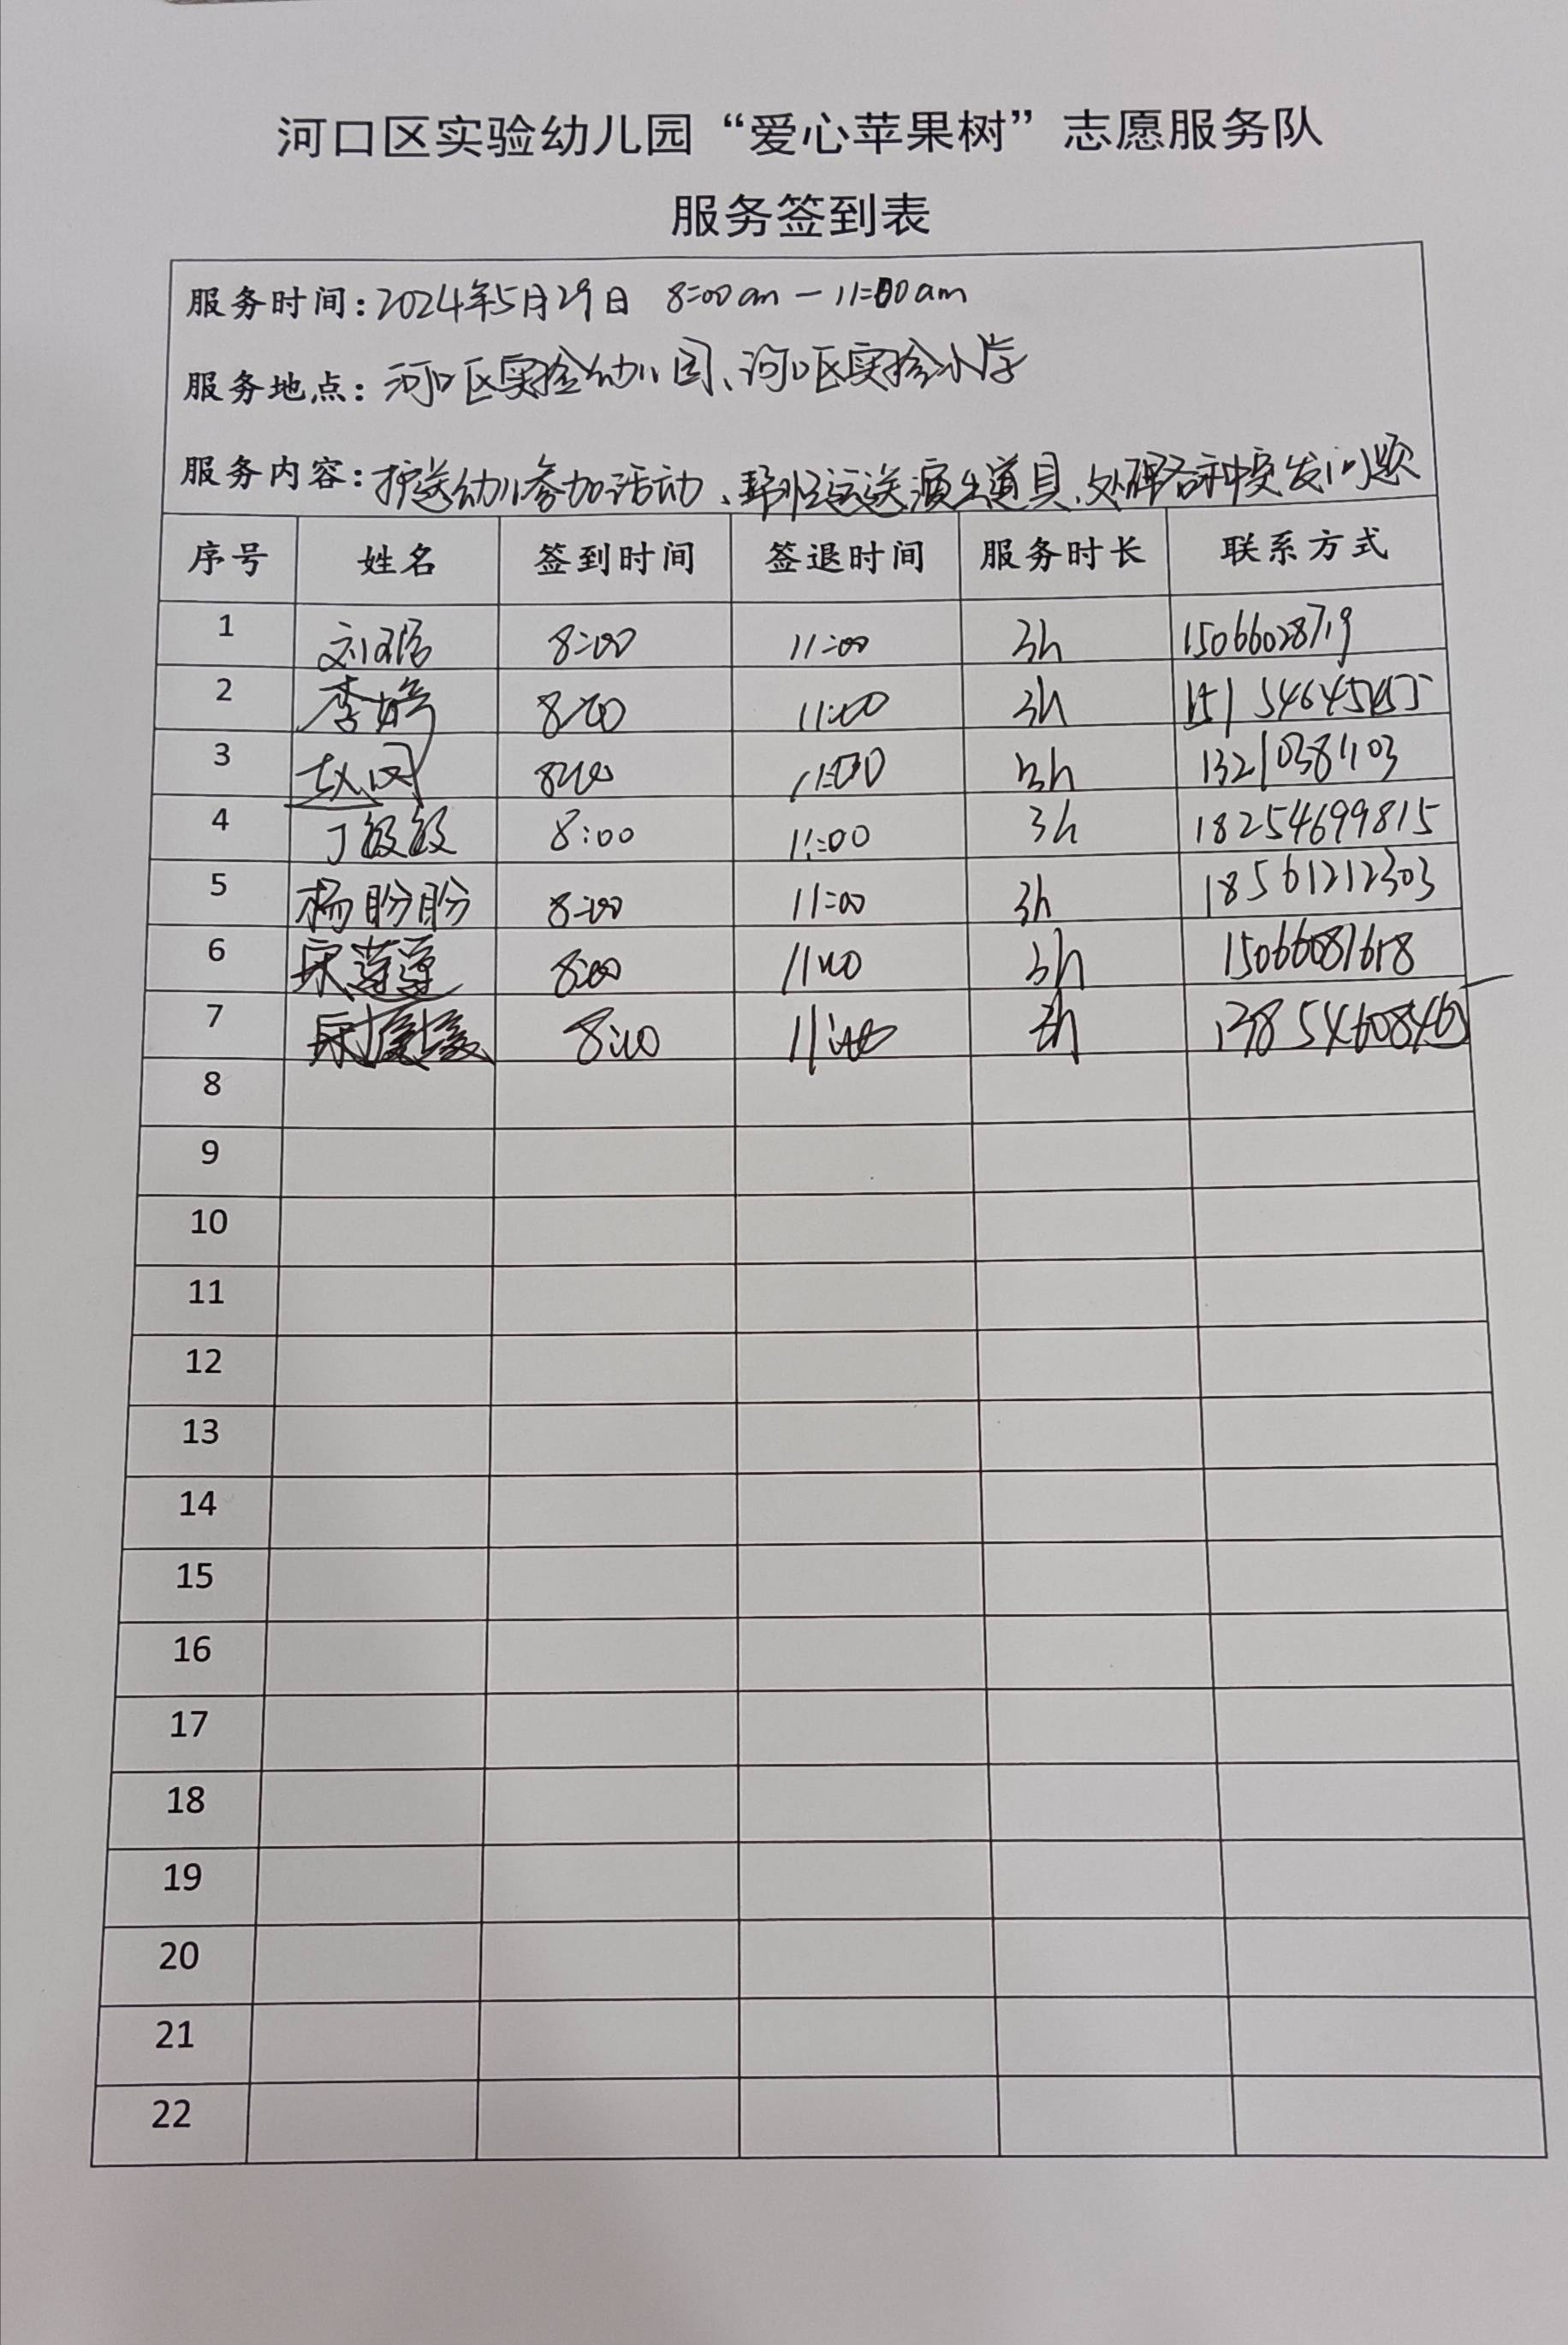 河口区实验幼儿园“爱心苹果树”志愿服务队
服务签到表
服务时间：2024年5月29日 8:00am — 11:00am
服务地点：河口区实验幼儿园、河口区实验小学
服务内容：护送幼儿参加活动、帮忙运送演出道具、处理各种突发问题
序号 姓名 签到时间 签退时间 服务时长 联系方式
1 8:00 11:00 3h 15066028719
2 李婷 8:00 11:00 3h
3 8:00 11:00 3h 13210381103
4 丁段段 8:00 11:00 3h 18254699815
5 杨盼盼 8:00 11:00 3h 18561212303
6 宋莲莲 8:00 11:00 3h
7 8:00 11:00 3h
8
9
10
11
12
13
14
15
16
17
18
19
20
21
22